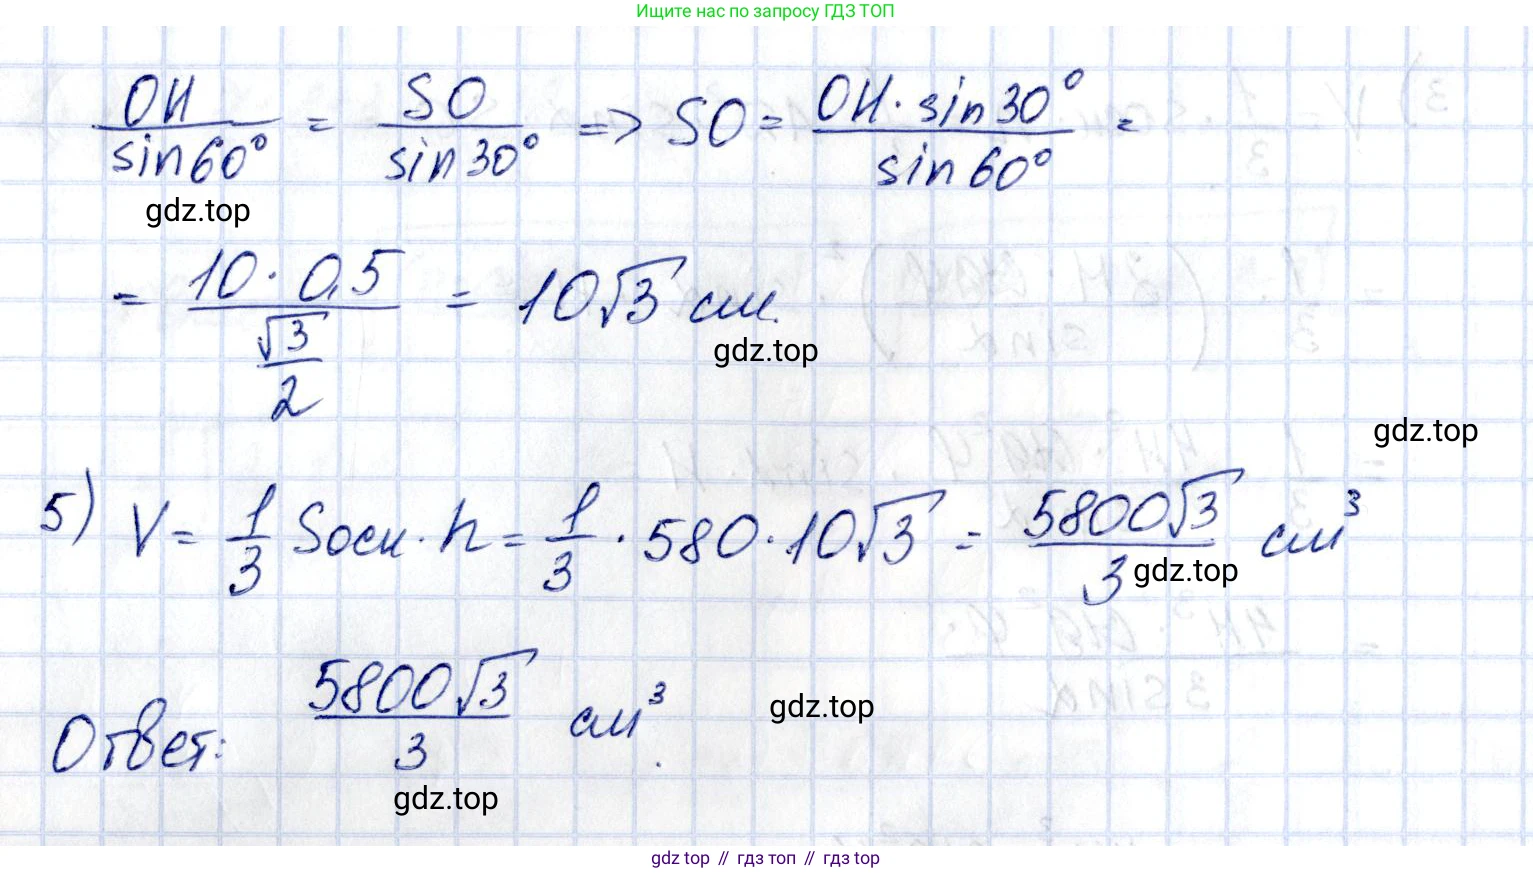 Ищите нас по запросу ГДЗ ТОП
OH/sin60° = SO/sin30° => SO = OH · sin30°/sin60° =
gdz.top
= 10 · 0,5/(√3/2) = 10√3 см.
gdz.top
gdz.top
5) V = 1/3 Sосн · h = 1/3 · 580 · 10√3 = 5800√3/3 см³
gdz.top
Ответ: 5800√3/3 см³.
gdz.top
gdz.top
gdz top // гдз топ // gdz top